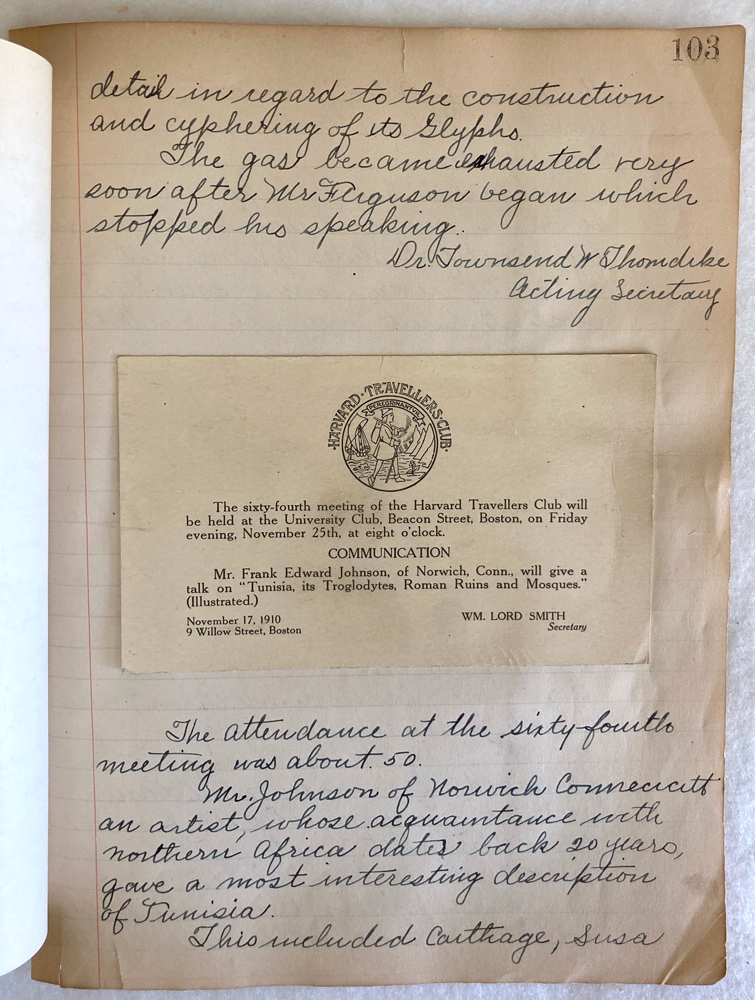 103
detail in regard to the construction
and cyphering of its Glyphs.
The gas became exhausted very
soon after Mr Ferguson began which
stopped his speaking.
Dr. Townsend W Thorndike
Acting Secretary
HARVARD·TRAVELLERS·CLUB·
The sixty-fourth meeting of the Harvard Travellers Club will
be held at the University Club, Beacon Street, Boston, on Friday
evening, November 25th, at eight o'clock.
COMMUNICATION
Mr. Frank Edward Johnson, of Norwich, Conn., will give a
talk on "Tunisia, its Troglodytes, Roman Ruins and Mosques."
(Illustrated.)
November 17, 1910 WM. LORD SMITH
9 Willow Street, Boston Secretary
The attendance at the sixty-fourth
meeting was about 50.
Mr. Johnson of Norwich Connecicitt
an artist, whose acquaintance with
northern Africa dates back 20 years,
gave a most interesting description
of Tunisia.
This included Carthage, Susa